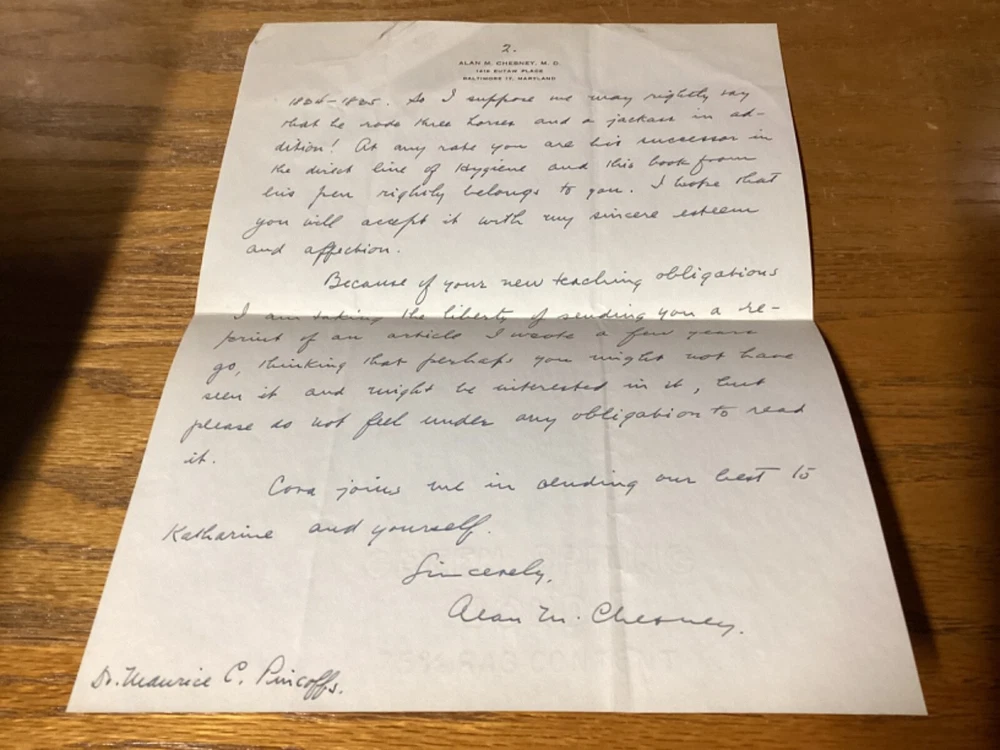 2.
ALAN M. CHESNEY, M. D.
1419 EUTAW PLACE
BALTIMORE 17, MARYLAND
So I suppose we may rightly say
that he rode three horses and a jackass in ad-
dition! At any rate you are his successor in
the direct line of Hygiene and this book from
his pen rightly belongs to you. I hope that
you will accept it with my sincere esteem
and affection.
Because of your new teaching obligations
I am taking the liberty of sending you a re-
print of an article I wrote a few years
go, thinking that perhaps you might not have
seen it and might be interested in it, but
please do not feel under any obligation to read
it.
Cora joins me in sending our best to
Katharine and yourself.
Sincerely,
Alan M. Chesney.
Dr. Maurice C. Pincoffs.